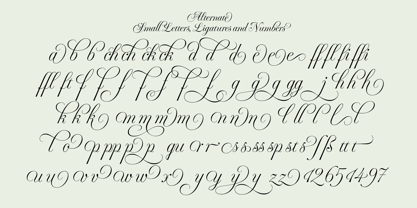 Alternate
Small Letters, Ligatures and Numbers
a b b ch ch ck ck d d d e e e ff ffl fi ffi
ffl fi f f f f f f g g g gg j h h h
k k k m m m n n n l l l l l
t o p p p p p qu r r s s s s sp st s ss tt t
u u v v w w x y y y y zz 1 2 6 5 1 4 9 7